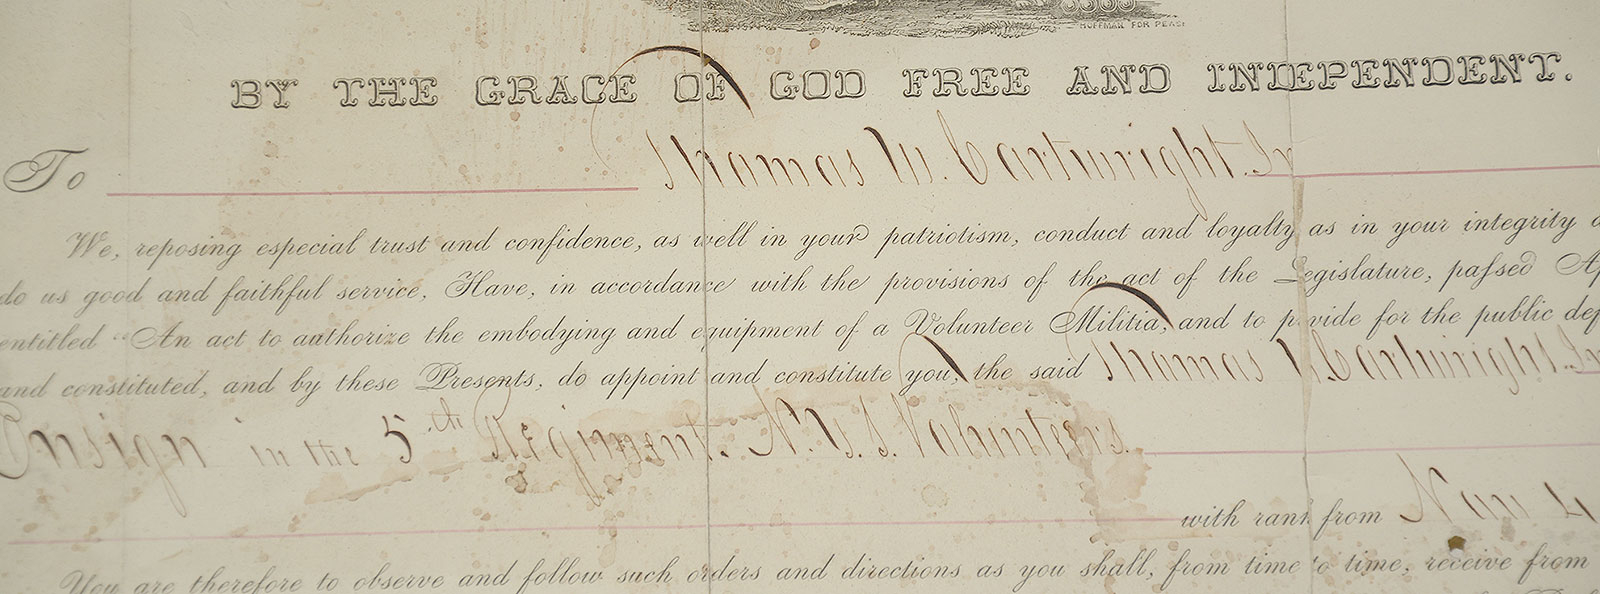 HUFFMAN FOR PEASE
BY THE GRACE OF GOD FREE AND INDEPENDENT.
To Thomas W. Cartwright. Jr
We, reposing especial trust and confidence, as well in your patriotism, conduct and loyalty as in your integrity
do us good and faithful service, Have, in accordance with the provisions of the act of the Legislature, passed Ap
entitled "An act to authorize the embodying and equipment of a Volunteer Militia, and to provide for the public def
and constituted, and by these Presents, do appoint and constitute you, the said Thomas W. Cartwright. Jr
Ensign in the 5th Regiment. N.Y.S. Volunteers.
with rank from
You are therefore to observe and follow such orders and directions as you shall, from time to time, receive from